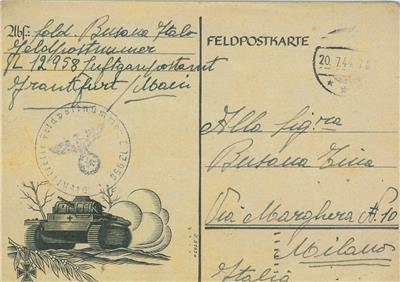 Abs: sold. Busana Italo
Feldpostnummer
L 12958 Luftgaupostamt
Frankfurt /Main
FELDPOSTKARTE
20.7.44
Alla sig.ra
Busana Tina
Via Marghera N. 10
Milano
Italia